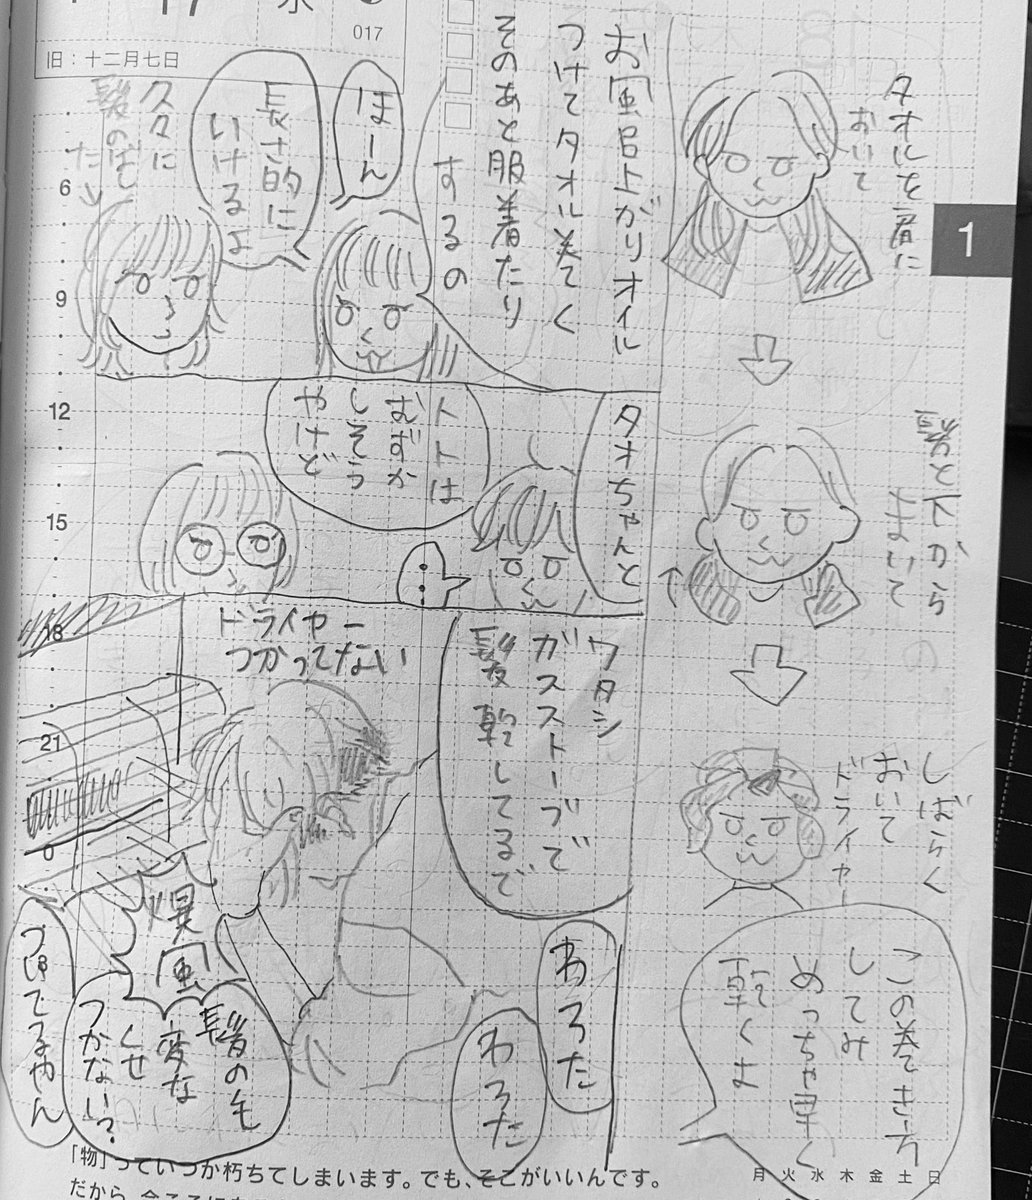 17
水
017
旧：十二月七日
1
6
9
12
15
18
21
0
タオルを肩に
おいて
髪を下から
まいて
しばらく
おいて
ドライヤー
この巻き方
してみ
めっちゃ早く
乾くよ
お風呂上がりオイル
つけてタオル巻く
そのあと服着たり
するの
ほーん
長さ的に
いけるよ
久々に
髪の毛
タオちゃんと
トトは
むずか
しそう
やけど
ワタシ
ガスストーブで
髪乾してるで
ドライヤー
つかってない
わろた
わろた
爆風
髪の毛
変な
くせ
つかない？
ついてるやん
「物」っていつか朽ちてしまいます。でも、そこがいいんです。
月 火 水 木 金 土 日